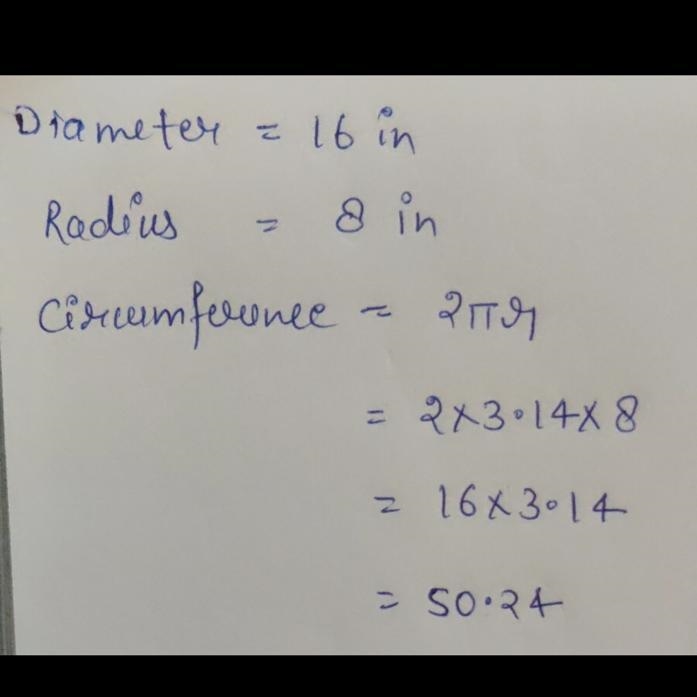 Diameter = 16 in
Radius = 8 in
Circumference = 2πr
= 2×3·14×8
= 16×3·14
= 50·24